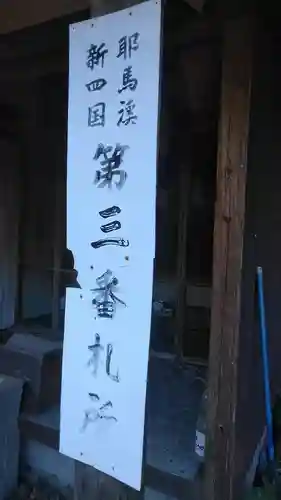 耶馬渓
新四国
第三番札所